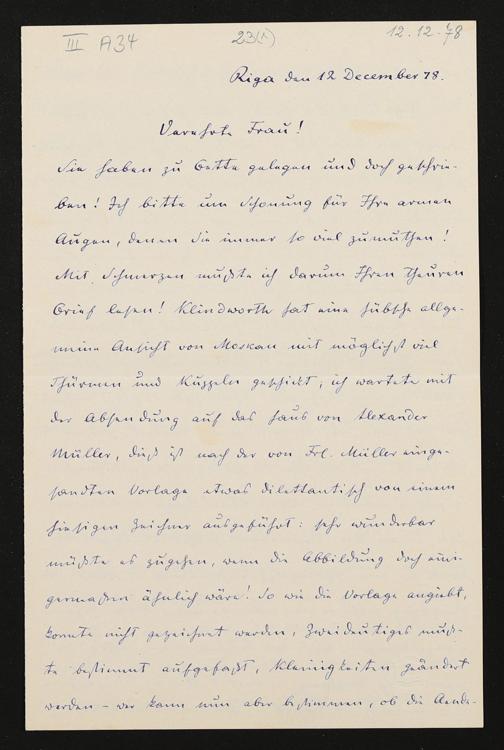 III A34
23(1)
12.12.78
Riga den 12 December 78.
Verehrte Frau!
Sie haben zu Bette gelegen und doch geschrie-
ben! Ich bitte um Schonung für Ihre armen
Augen, denen Sie immer so viel zumuthen!
Mit Schmerzen mußte ich darum Ihren theuren
Brief lesen! Klindworth hat eine hübsche allge-
meine Ansicht von Moskau mit möglichst viel
Thürmen und Kuppeln geschickt, ich wartete mit
der Absendung auf das Haus von Alexander
Müller, dieß ist nach der von Frl. Müller einge-
sandten Vorlage etwas dilettantisch von einem
hiesigen Zeichner ausgeführt: sehr wunderbar
müßte es zugehen, wenn die Abbildung doch eini-
germaßen ähnlich wäre! So wie die Vorlage angiebt,
konnte nicht gezeichnet werden, Zweideutiges muß-
te bestimmt aufgefaßt, Kleinigkeiten geändert
werden – wer kann nun aber bestimmen, ob die Aende-